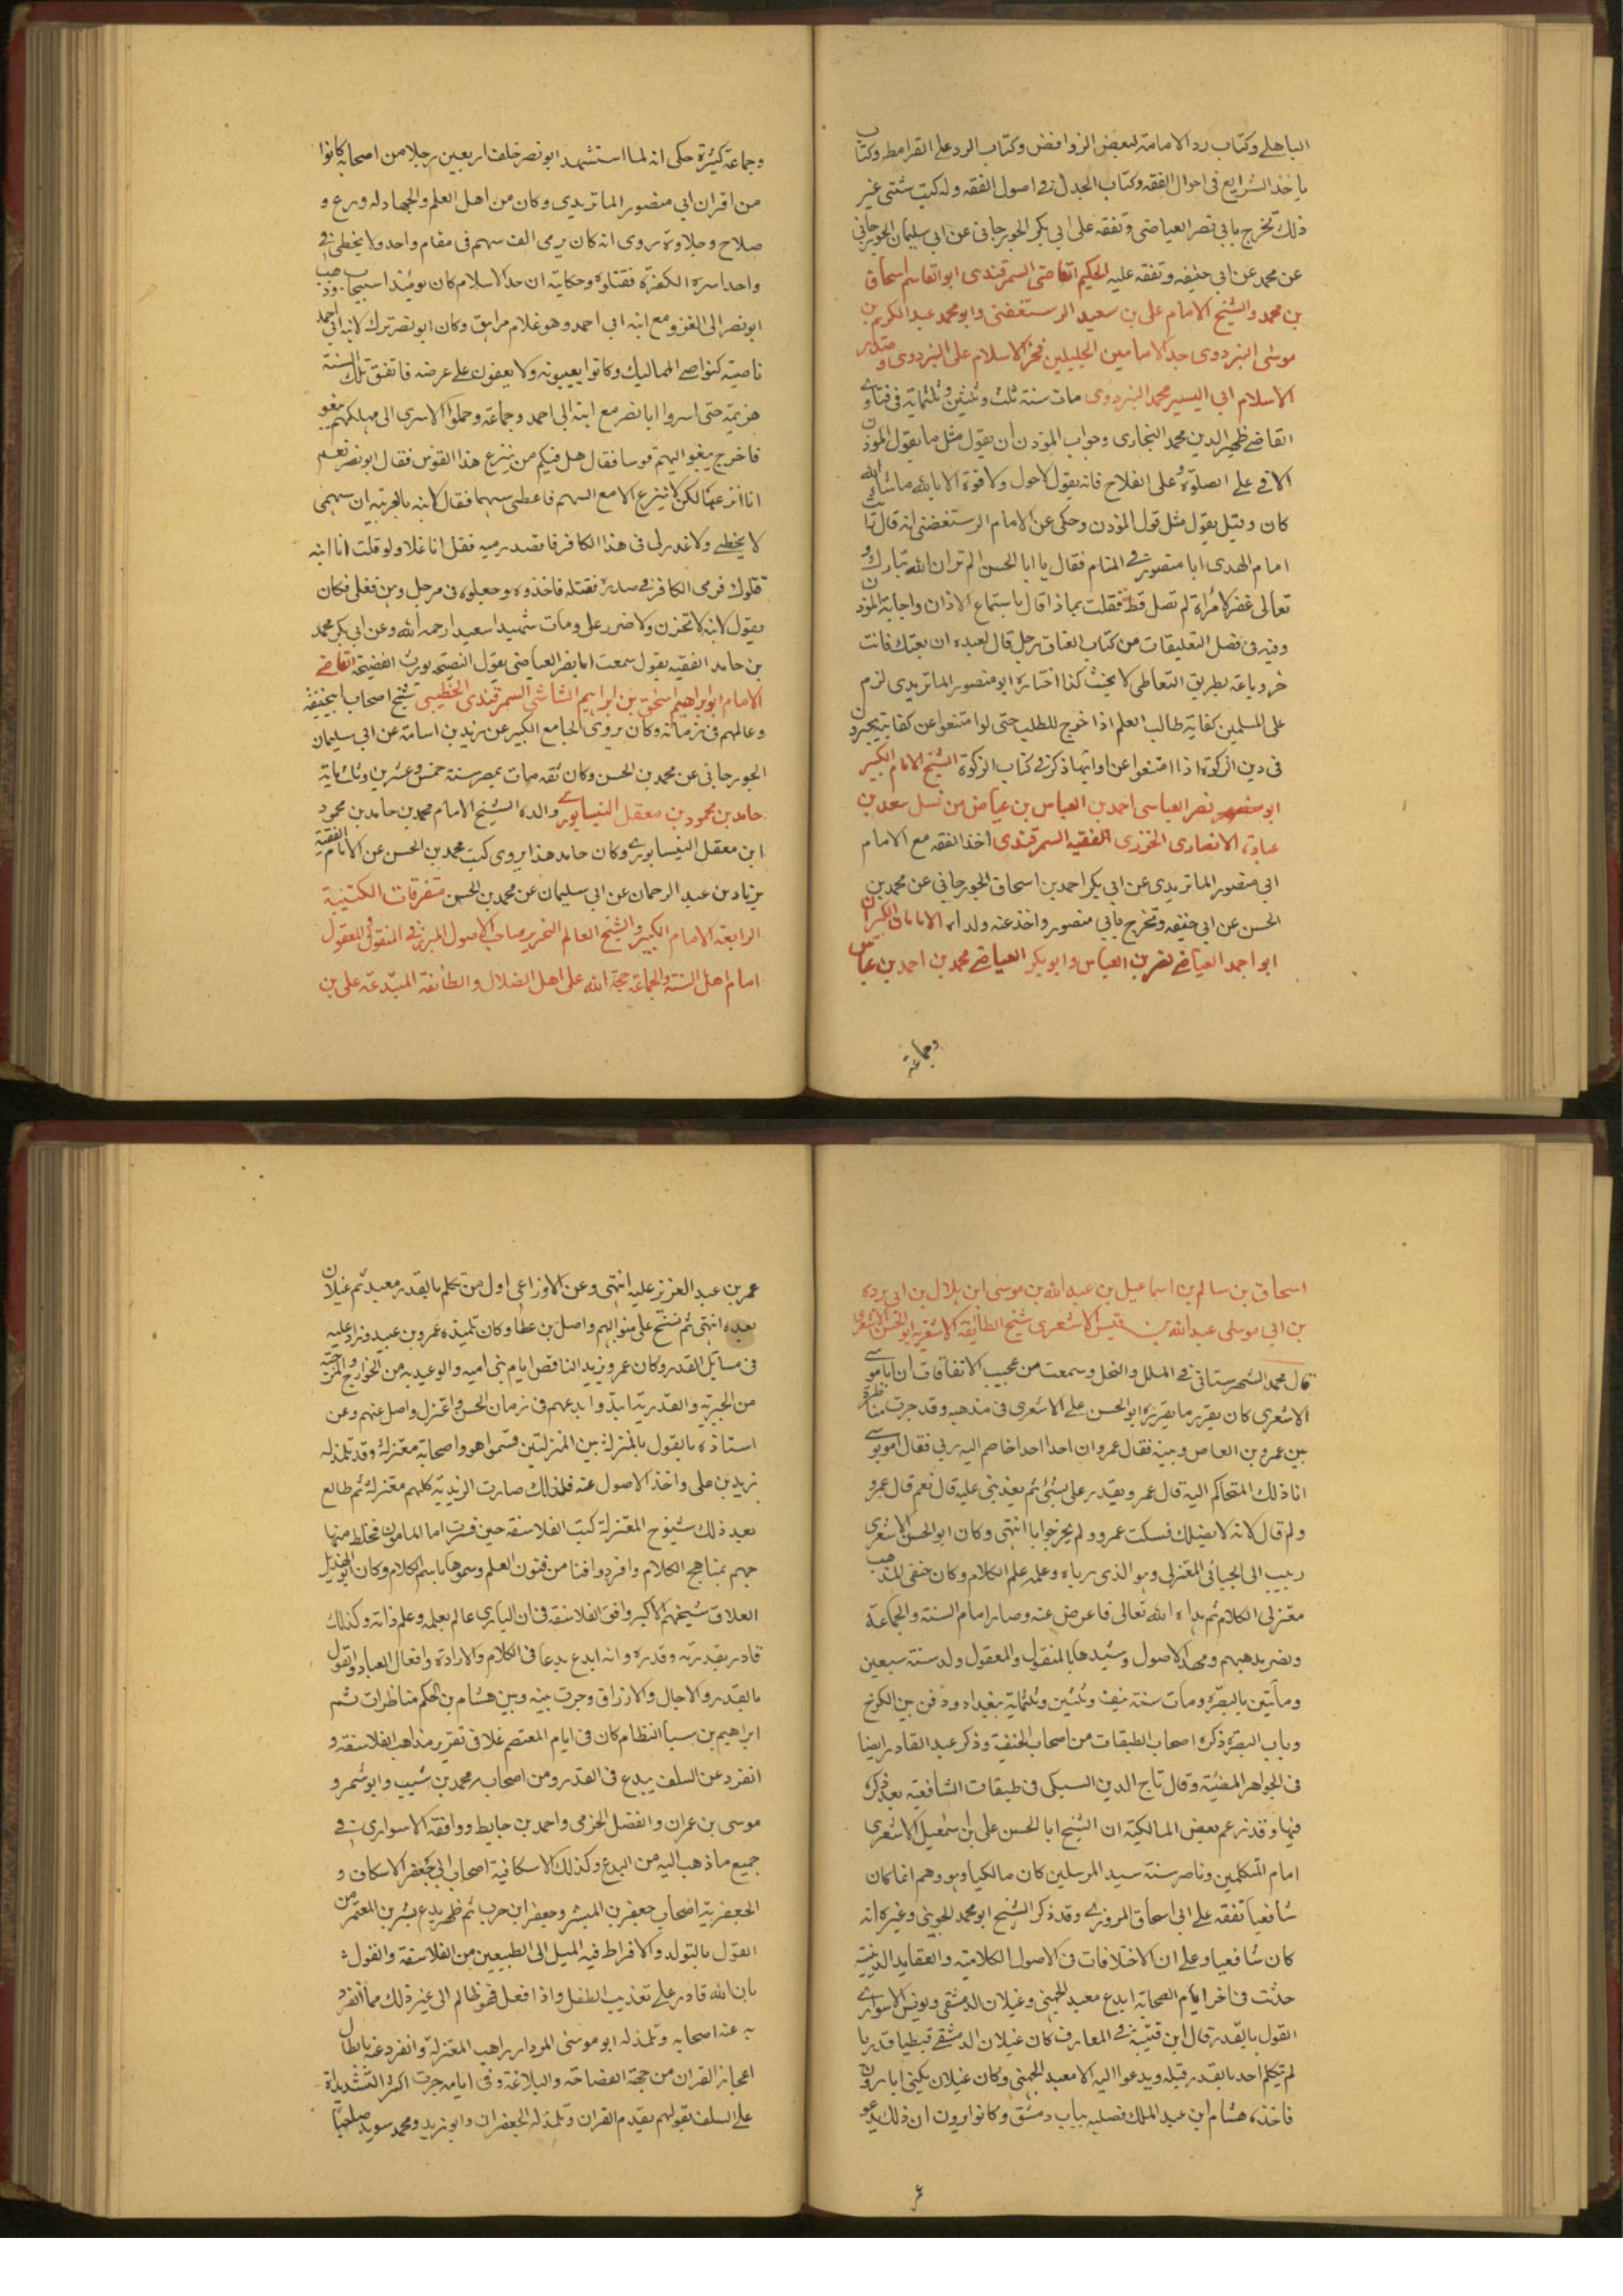 الباهلي وكتاب رد الامامة لبعض الروافض وكتاب الرد على القرامطة وكتاب
ماخذ الشرايع في اصول الفقه وكتاب الجدل في اصول الفقه وله كتب شتى غير
ذلك تخرج بابي نصر العياضي وتفقه على ابي بكر الجوزجاني عن ابي سليمان الجوزجاني
عن محمد عن ابي حنيفه وتفقه عليه الحكيم القاضي السمرقندي ابو القاسم اسحاق
بن محمد والشيخ الامام علي بن سعيد الرستغفني وابو محمد عبد الكريم بن
موسى البزدوي جد الامامين الجليلين فخر الاسلام علي البزدوي وصدر
الاسلام ابي اليسير محمد البزدوي مات سنة ثلث وثلثين وثلثمائة في فتاوى
القاضي ظهير الدين محمد البخاري وجواب المؤذن ان يقول مثل ما يقول المؤذن
الا في على الصلوة وعلى الفلاح فانه يقول لا حول ولا قوة الا بالله ما شاء الله
كان وقيل يقول مثل قول المؤذن وحكى عن الامام الرستغفني انه قال رايت
امام الهدى ابا منصور في المنام فقال يا ابا الحسن الم تر ان الله تبارك و
تعالى غفر لامراة لم تصل قط فقلت بماذا قال باستماع الاذان واجابة المؤذن
وفيه في فصل التعليقات من كتاب العتاق رجل قال لعبده ان بعتك فانت
حر وباعه بطريق التعاطي لا يحنث كذا اختاره ابو منصور الماتريدي لزم
على المسلمين كفاية طالب العلم اذا خرج للطلب حتى لو امتنعوا عن كفايته يجبرون
في دين الزكوة اذا امتنعوا عن ادائها ذكره في كتاب الزكوة الشيخ الامام الكبير
ابو نصر العياسي احمد بن العباس بن عياض من نسل سعد بن
عبادة الانصاري الخزرجي الفقيه السمرقندي اخذ الفقه مع الامام
ابي منصور الماتريدي عن ابي بكر احمد بن اسحاق الجوزجاني عن محمد بن
الحسن عن ابي حنيفه وتخرج بابي منصور واخذ عنه ولداه الامامان الكبيران
ابو احمد العياضي نصر بن العباس وابو بكر العياضي محمد بن احمد بن عباس
وجماعة
وجماعة كثيرة حكى انه لما استشهد ابو نصر خلف اربعين رجلا من اصحابه كانوا
من اقران ابي منصور الماتريدي وكان من اهل العلم والجهاد له ورع و
صلاح وجلادة روى انه كان يرمي الف سهم في مقام واحد ولا يخطئ في
واحد اسره الكفرة فقتلوه وحكايته ان حد الاسلام كان يومئذ اسبيجاب وذهب
ابو نصر الى الغزو مع ابنه ابي احمد وهو غلام مراهق وكان ابو نصر ترك لابنه ابي احمد
ناصية كنواصي المماليك وكانوا يعيبونه ولا يعفون على عرضه فاتفق تلك السنة
هزيمة حتى اسروا ابا نصر مع ابنه ابي احمد وجماعة وحملوا الاسرى الى ملكهم يبغو
فاخرج يبغو اليهم قوسا فقال هل فيكم من ينزع هذا القوس فقال ابو نصر نعم
انا انزعها لكن لا ينزع الا مع السهم فاعطى سهما فقال لابنه بالعربية ان سهمي
لا يخطئ ولا غدر لي في هذا الكافر فاقصد رميه فقل انا غلام ولو قلت انا ابنه
قتلوك فرمى الكافر في صدره فقتله فاخذوه وجعلوه في مرجل دهن فغلى فكان
يقول لابنه لا تحزن ولا ضرر علي ومات شهيدا سعيدا رحمه الله وعن ابي بكر محمد
بن حامد الفقيه يقول سمعت ابا نصر العياضي يقول النصيحة يورث الفضيحة القاضي
الامام ابو ابراهيم اسحق بن ابراهيم الشاشي السمرقندي الخطيبي شيخ اصحاب ابي حنيفة
وعالمهم في زمانه وكان يروي الجامع الكبير عن زيد بن اسامة عن ابي سليمان
الجوزجاني عن محمد بن الحسن وكان ثقه مات بمصر سنة خمس وعشرين وثلثمائة
حامد بن محمود بن معقل النيسابوري والده الشيخ الامام محمد بن حامد بن محمود
ابن معقل النيسابوري وكان حامد هذا يروي كتب محمد بن الحسن عن الامام الفقيه
زياد بن عبد الرحمان عن ابي سليمان عن محمد بن الحسن متفرقات الكتيبة
الرابعة الامام الكبير والشيخ العالم النحرير صاحب الاصول المبرز في المنقول والمعقول
امام اهل السنة والجماعة حجة الله على اهل الضلال والطائفة المبتدعة علي بن
اسحاق بن سالم بن اسماعيل بن عبد الله بن موسى ابن بلال بن ابي برده
بن ابي موسى عبد الله بن قيس الاشعري شيخ الطائفة الاشعرية ابو الحسن الاشعري
قال محمد الشهرستاني في الملل والنحل وسمعت من عجيب الاتفاقات ان ابا موسى
الاشعري كان يقرر ما يقرره ابو الحسن علي الاشعري في مذهبه وقد جرت مناظرة
بين عمرو بن العاص وبينه فقال عمرو ان احدا احدا خاصم اليه ربي فقال ابو موسى
انا ذلك المتحاكم اليه قال عمرو يقدر علي بشئ ثم يعذبني عليه قال نعم قال عمرو
ولم قال لانه لا يضلك فسكت عمرو ولم يحر جوابا انتهى وكان ابو الحسن الاشعري
ربيب الى الجبائي المعتزلي وهو الذي رباه وعلمه علم الكلام وكان حنفي المذهب
معتزلي الكلام ثم بداه الله تعالى فاعرض عنه وصار امام السنة والجماعة
ونصر مذهبهم ومهد الاصول وشيدها بالمنقول والمعقول ولد سنة سبعين
ومأتين بالبصرة ومات سنة نيف وثلثين وثلثمائة ببغداد ودفن بين الكرخ
وباب البصرة ذكره اصحاب الطبقات من اصحاب الحنفية وذكر عبد القادر ايضا
في الجواهر المضيئة وقال تاج الدين السبكي في طبقات الشافعيه بعد ذكره
فيها وقد زعم بعض المالكية ان الشيخ ابا الحسن علي ابن اسمعيل الاشعري
امام المتكلمين وناصر سنة سيد المرسلين كان مالكيا وهو وهم انما كان
شافعيا تفقه على ابي اسحاق المروزي وقد ذكر الشيخ ابو محمد الجويني وغيره انه
كان شافعيا وعلى ان الاختلافات في الاصول الكلامية والعقايد الدينية
حدثت في اخر ايام الصحابة ابدع معبد الجهني وغيلان الدمشقي ويونس الاسواري
القول بالقدر قال ابن قتيبة في المعارف كان غيلان الدمشقي قبطيا قدريا
لم يتكلم احد بالقدر قبله ويدعوا اليه الا معبد الجهني وكان غيلان يكنى ابا مروان
فاخذه هشام ابن عبد الملك فصلبه بباب دمشق وكانوا يرون ان ذلك يدعو
عمر
عمر بن عبد العزيز عليه انتهى وعن الاوزاعي اول من تكلم بالقدر معبد ثم غيلان
بعده انتهى ثم نسج على منوالهم واصل بن عطا وكان تلميذه عمرو بن عبيد فزاد عليه
في مسائل القدر وكان عمرو يزيد الناقص ايام بني اميه والوعيديه من الخوارج والمرجئة
من الجبرية والقدرية ابتدوا بدعهم في زمان الحسن واعتزل واصل عنهم وعن
استاذه بالقول بالمنزلة بين المنزلتين فسموا هو واصحابه معتزلة وقد تلمذ له
زيد بن علي واخذ الاصول عنه فلذلك صارت الزيدية كلهم معتزلة ثم طالع
بعد ذلك شيوخ المعتزلة كتب الفلاسفة حين فسرت ايام المامون فخلط منها
جهم بمناهج الكلام وافردوا فنا من فنون العلم وسموها باسم الكلام وكان ابو هذيل
العلاف شيخهم الاكبر وافق الفلاسفه في ان الباري عالم بعلمه وعلم ذاته وكذلك
قادر بقدرته وقدره وانه ابدع بدعا في الكلام والارادة وافعال العباد والقول
بالقدر والاجال والارزاق وجرت بينه وبين هشام بن الحكم مناظرات ثم
ابراهيم بن سيا النظام كان في ايام المعتصم غلا في تقرير مذاهب الفلاسفة و
انفرد عن السلف ببدع في القدر ومن اصحابه محمد بن شبيب وابو شمر و
موسى بن عمران والفضل الحرمي واحمد بن حايط ووافقه الاسواري في
جميع ما ذهب اليه من البدع وكذلك الاسكافية اصحاب ابي جعفر الاسكاف و
الجعفرية اصحاب جعفر بن المبشر وجعفر ابن حرب ثم ظهر بدع بشر بن المعتمر من
القول بالتولد والافراط فيه الميل الى الطبيعين من الفلاسفة والقول
بان الله قادر على تعذيب الطفل واذا فعل فهو ظالم الى غير ذلك مما انفرد
به عنه اصحابه وتلمذ له ابو موسى المردار راهب المعتزلة وانفرد عنه بابطال
اعجاز القران من جهة الفصاحة والبلاغة وفي ايامه جرت اكثر التشديدات
على السلف بقولهم بقدم القران وتلمذ له الجعفران وابو زيد ومحمد سويد صاحبا